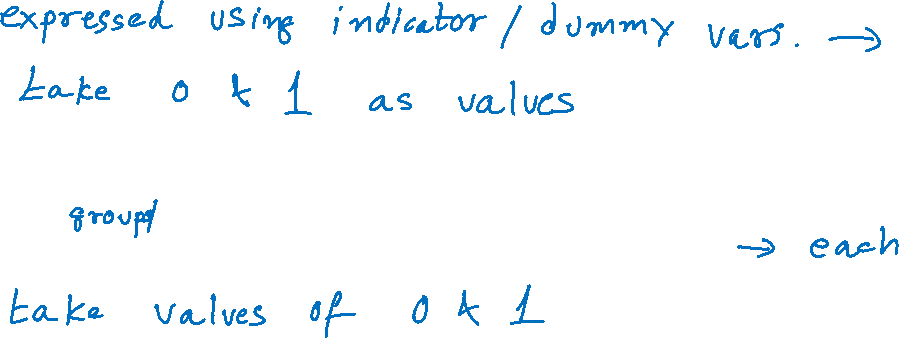 expressed using indicator / dummy vars. →
take 0 & 1 as values
group
→ each
take values of 0 & 1